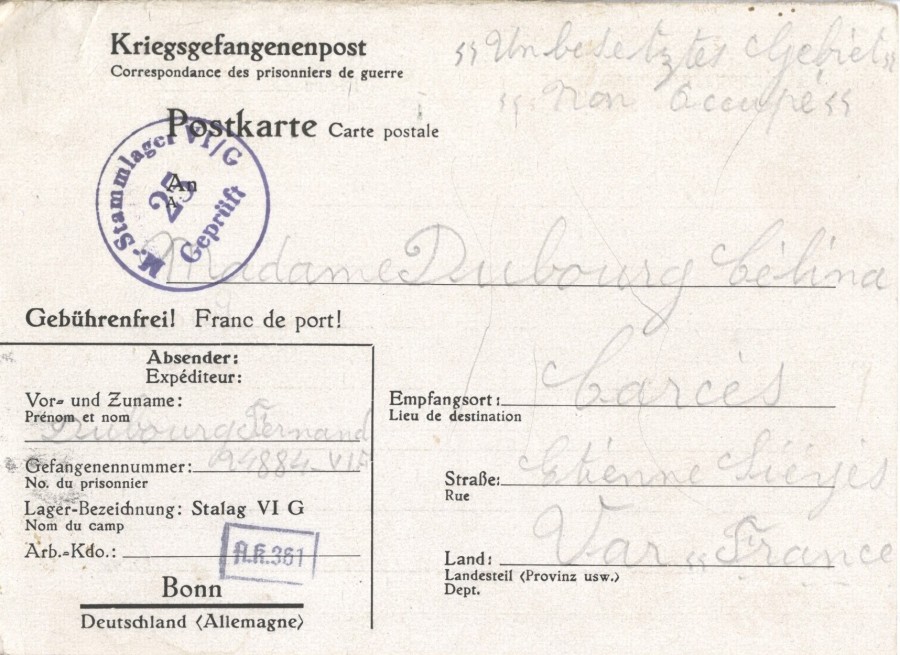 Kriegsgefangenenpost
Correspondance des prisonniers de guerre
"Unbesetztes Gebiet"
"Non Occupé"
Postkarte Carte postale
M.-Stammlager VI/G
25
Geprüft
An
A
Madame Dubourg Célina
Gebührenfrei! Franc de port!
Absender:
Expéditeur:
Vor- und Zuname:
Prénom et nom
Dubourg Fernand
Gefangenennummer: 94884-VI
No. du prisonnier
Lager-Bezeichnung: Stalag VI G
Nom du camp
Arb.-Kdo.: A.K.361
Bonn
Deutschland (Allemagne)
Empfangsort: Carcès
Lieu de destination
Straße: Etienne
Rue
Land: Var "France
Landesteil (Provinz usw.)
Dept.